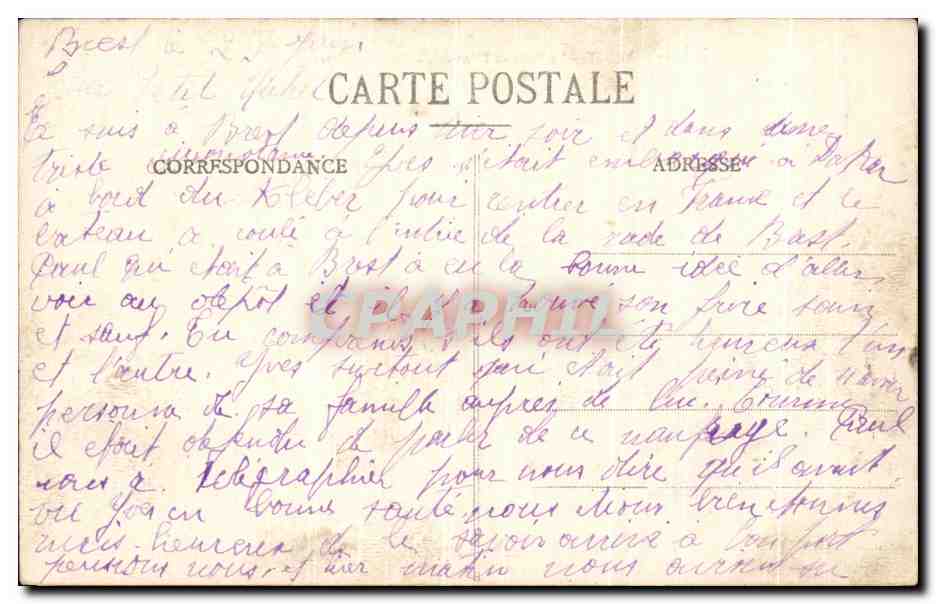 Brest le 2
Petit
CARTE POSTALE
Je suis à Brest depuis hier soir et dans une
triste Yves s'était embarqué à Dakar
CORRESPONDANCE
ADRESSE
à bord du Kleber pour rentrer en France et le
bateau a coulé à l'entrée de la rade de Brest.
Paul qui était à Brest à eu la bonne idée d'aller
voir au dépôt et il y a trouvé son frère sain
et sauf. Tu comprends s'ils ont été heureux l'un
et l'autre. Yves surtout qui était peiné de n'avoir
personne de sa famille auprès de lui. Comme
il était defendu de parler de ce naufrage. Paul
nous a télégraphier pour nous dire qu'il avait
vu Yves en bonne santé, nous étonnés
mais heureux de le savoir arrivé à bon port
pensions nous, et hier matin nous avons
CPAPHIL